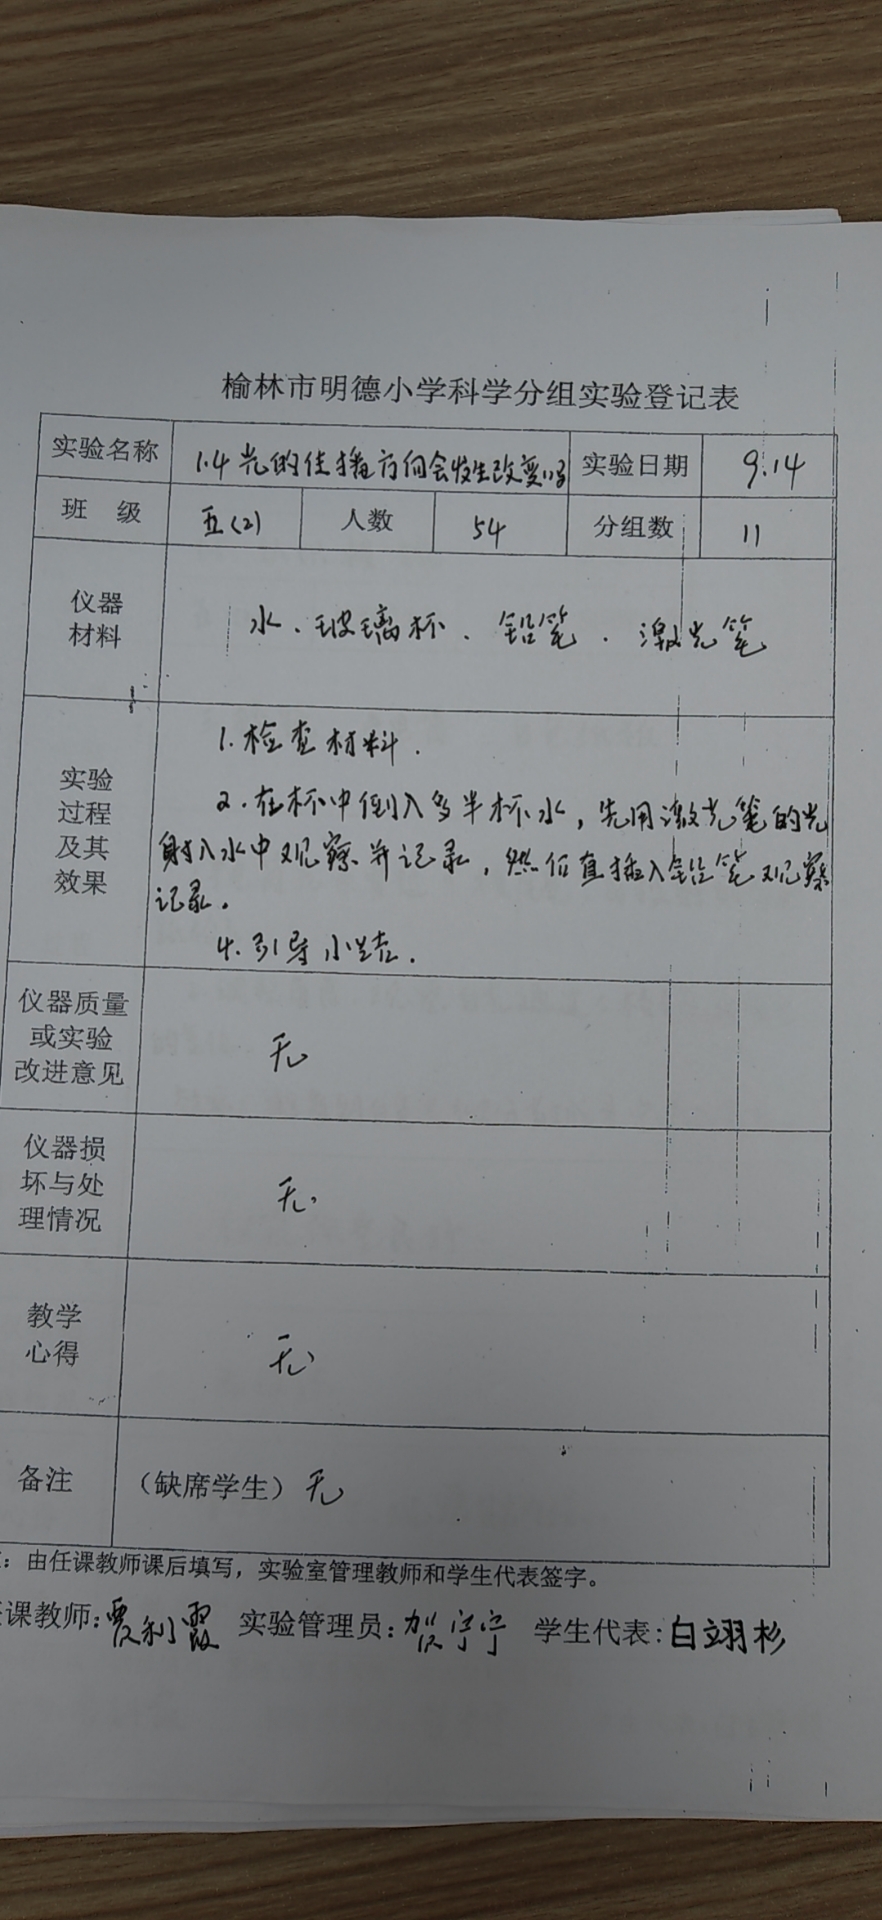 榆林市明德小学科学分组实验登记表
实验名称 1.4光的传播方向会发生改变吗 实验日期 9.14
班 级 五(2) 人数 54 分组数 11
仪器
材料
水、玻璃杯、铅笔、激光笔
实验
过程
及其
效果
1.检查材料.
2.在杯中倒入多半杯水,先用激光笔的光
射入水中观察并记录,然后直插入铅笔观察
记录.
4.引导小结.
仪器质量
或实验
改进意见
无
仪器损
坏与处
理情况
无.
教学
心得
无
备注 (缺席学生)无
:由任课教师课后填写,实验室管理教师和学生代表签字。
课教师:贾利霞 实验管理员:贺宁宁 学生代表:白翊杉